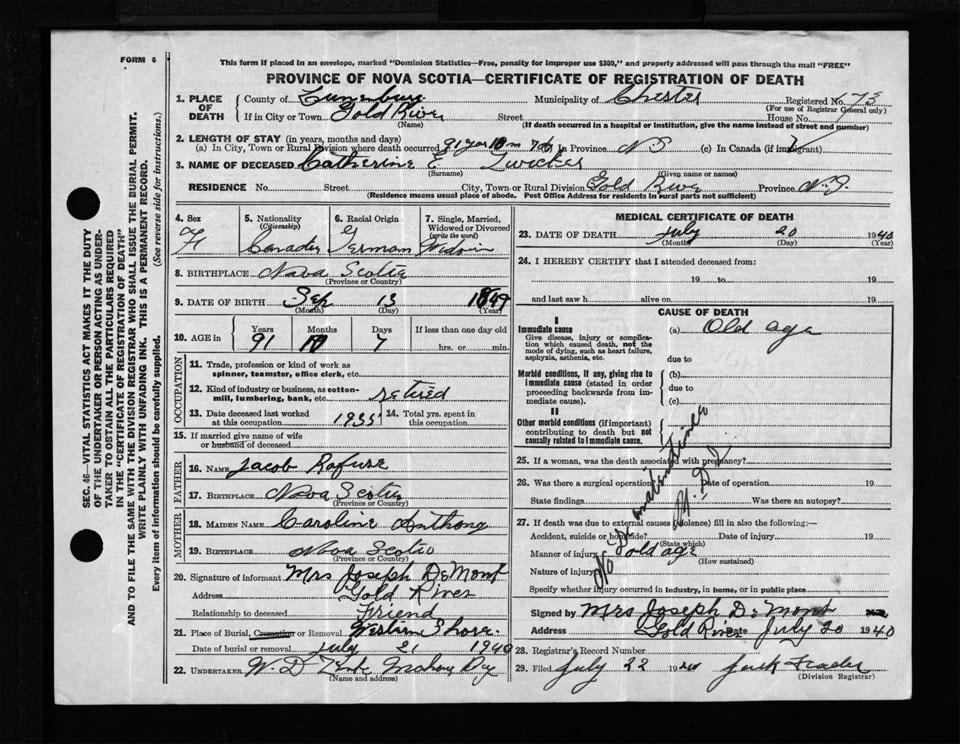 FORM 6
This form if placed in an envelope, marked "Dominion Statistics—Free, penalty for improper use $300," and properly addressed will pass through the mail "FREE"
PROVINCE OF NOVA SCOTIA—CERTIFICATE OF REGISTRATION OF DEATH
SEC. 46—VITAL STATISTICS ACT MAKES IT THE DUTY
OF THE UNDERTAKER OR PERSON ACTING AS UNDER-
TAKER TO OBTAIN ALL THE PARTICULARS REQUIRED
IN THE "CERTIFICATE OF REGISTRATION OF DEATH"
AND TO FILE THE SAME WITH THE DIVISION REGISTRAR WHO SHALL ISSUE THE BURIAL PERMIT.
WRITE PLAINLY WITH UNFADING INK. THIS IS A PERMANENT RECORD.
Every item of information should be carefully supplied. (See reverse side for instructions.)
1. PLACE OF DEATH County of Lunenburg Municipality of Chester Registered No. 473
(For use of Registrar General only)
If in City or Town Gold River Street House No.
(Name) (If death occurred in a hospital or institution, give the name instead of street and number)
2. LENGTH OF STAY (in years, months and days)
(a) In City, Town or Rural Division where death occurred 91 yrs 10 m 7 d (b) In Province N S (c) In Canada (if immigrant)
3. NAME OF DECEASED Catherine E Zwicker
(Surname) (Given name or names)
RESIDENCE No. Street City, Town or Rural Division Gold River Province N.S.
(Residence means usual place of abode. Post Office Address for residents in rural parts not sufficient)
4. Sex F
5. Nationality (Citizenship)
6. Racial Origin German
7. Single, Married, Widowed or Divorced (write the word)
8. BIRTHPLACE Nova Scotia
(Province or Country)
9. DATE OF BIRTH Sep 13
(Month) (Day) (Year)
10. AGE in Years Months Days If less than one day old
91 10 7 hrs. or min.
OCCUPATION
11. Trade, profession or kind of work as
spinner, teamster, office clerk, etc.
12. Kind of industry or business, as cotton-
mill, lumbering, bank, etc. retired
13. Date deceased last worked
at this occupation 1935
14. Total yrs. spent in
this occupation
15. If married give name of wife
or husband of deceased
FATHER
16. NAME Jacob Rafuse
17. BIRTHPLACE Nova Scotia
(Province or Country)
MOTHER
18. MAIDEN NAME Caroline Anthony
19. BIRTHPLACE Nova Scotia
(Province or Country)
20. Signature of informant Mrs Joseph DeMont
Address Gold River
Relationship to deceased Friend
21. Place of Burial, Cremation or Removal Western Shore
Date of burial or removal July 21 1940
22. UNDERTAKER W. D
(Name and address)
MEDICAL CERTIFICATE OF DEATH
23. DATE OF DEATH July 20 1940
(Month) (Day) (Year)
24. I HEREBY CERTIFY that I attended deceased from:
19 to 19
and last saw h alive on 19
CAUSE OF DEATH
I
Immediate cause (a) Old age
Give disease, injury or complica-
tion which caused death, not the
mode of dying, such as heart failure,
asphyxia, asthenia, etc. due to
Morbid conditions, if any, giving rise to (b)
immediate cause (stated in order
proceeding backwards from im- due to
mediate cause). (c)
II
Other morbid conditions (if important)
contributing to death but not
causally related to immediate cause.
25. If a woman, was the death associated with pregnancy?
26. Was there a surgical operation? Date of operation 19
State findings Was there an autopsy?
27. If death was due to external causes (violence) fill in also the following:
Accident, suicide or homicide? Date of injury 19
(State which)
Manner of injury old age
(How sustained)
Nature of injury
Specify whether injury occurred in industry, in home, or in public place
No
M. D.
Signed by Mrs Joseph DeMont
Address Gold River Date July 20 1940
28. Registrar's Record Number
29. Filed July 22 19 Jack
(Division Registrar)